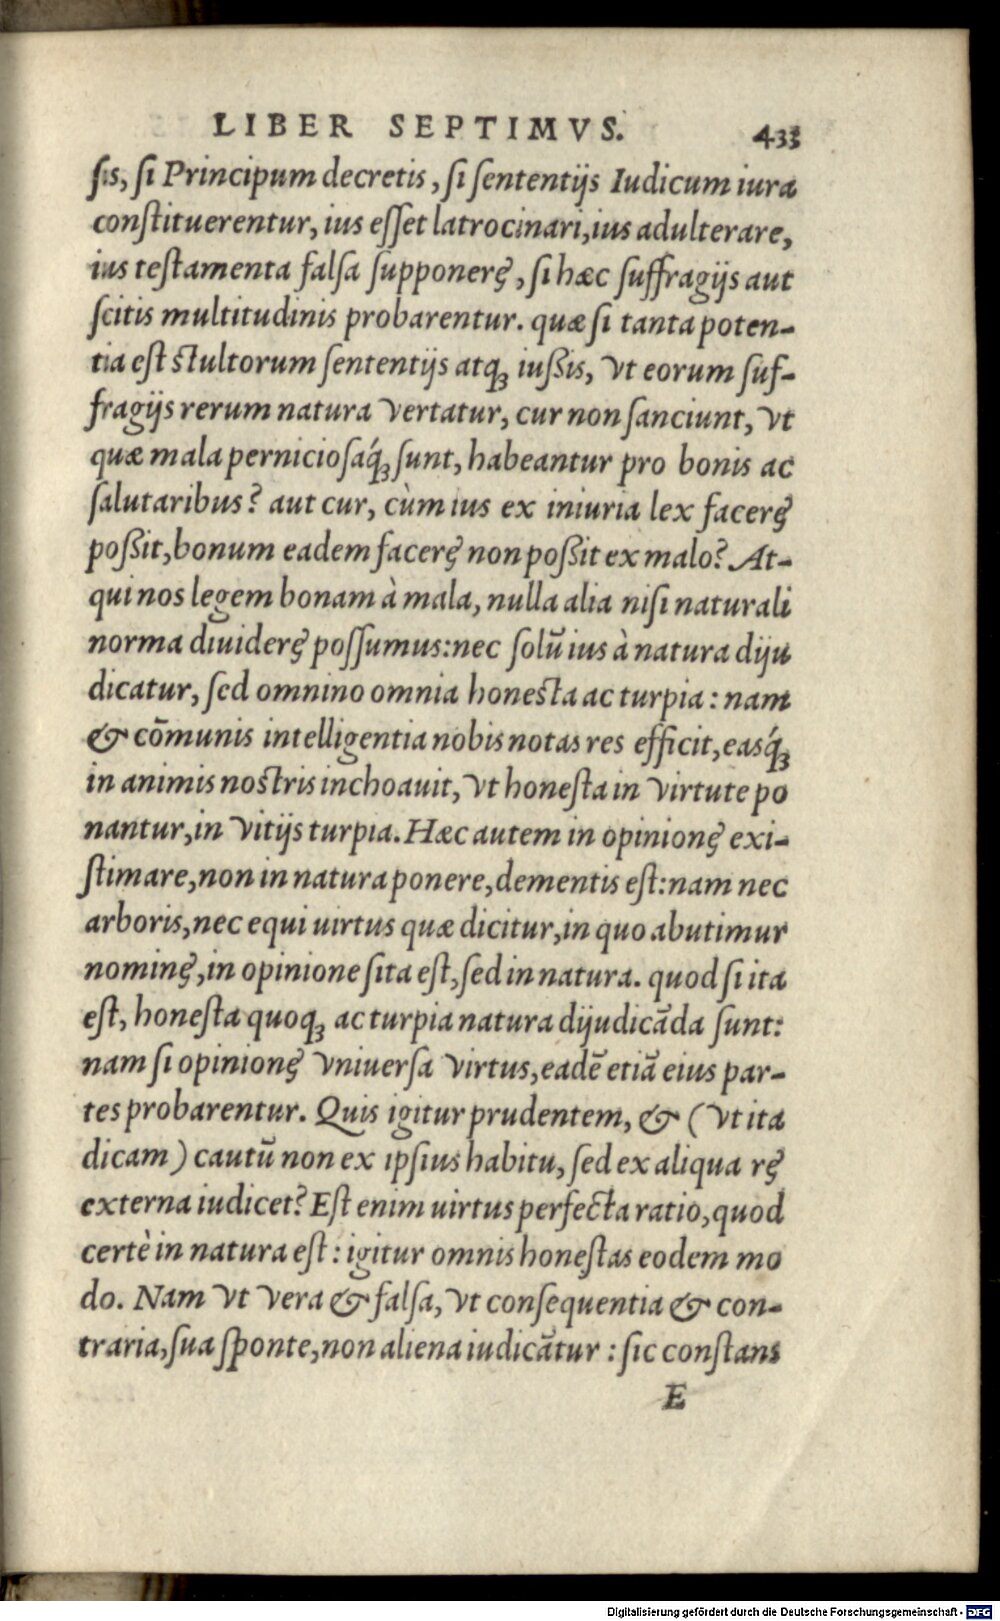 LIBER SEPTIMVS. 433
sis, si Principum decretis, si sententijs Iudicum iura
constituerentur, ius esset latrocinari, ius adulterare,
ius testamenta falsa supponere, si hæc suffragijs aut
scitis multitudinis probarentur. quæ si tanta poten-
tia est stultorum sententijs atq; iußis, vt eorum suf-
fragijs rerum natura vertatur, cur non sanciunt, vt
quæ mala perniciosaq́; sunt, habeantur pro bonis ac
salutaribus? aut cur, cùm ius ex iniuria lex facere
poßit, bonum eadem facere non poßit ex malo? At-
qui nos legem bonam à mala, nulla alia nisi naturali
norma diuidere possumus: nec solũ ius à natura diju
dicatur, sed omnino omnia honesta ac turpia: nam
& cõmunis intelligentia nobis notas res efficit, easq́;
in animis nostris inchoauit, vt honesta in virtute po
nantur, in vitijs turpia. Hæc autem in opinione exi-
stimare, non in natura ponere, dementis est: nam nec
arboris, nec equi uirtus quæ dicitur, in quo abutimur
nomine, in opinione sita est, sed in natura. quod si ita
est, honesta quoq; ac turpia natura dijudicãda sunt:
nam si opinione vniuersa virtus, eadẽ etiã eius par-
tes probarentur. Quis igitur prudentem, & (vt ita
dicam) cautũ non ex ipsius habitu, sed ex aliqua re
externa iudicet? Est enim uirtus perfecta ratio, quod
certè in natura est: igitur omnis honestas eodem mo
do. Nam vt vera & falsa, vt consequentia & con-
traria, sua sponte, non aliena iudicãtur: sic constans
E
Digitalisierung gefördert durch die Deutsche Forschungsgemeinschaft - DFG